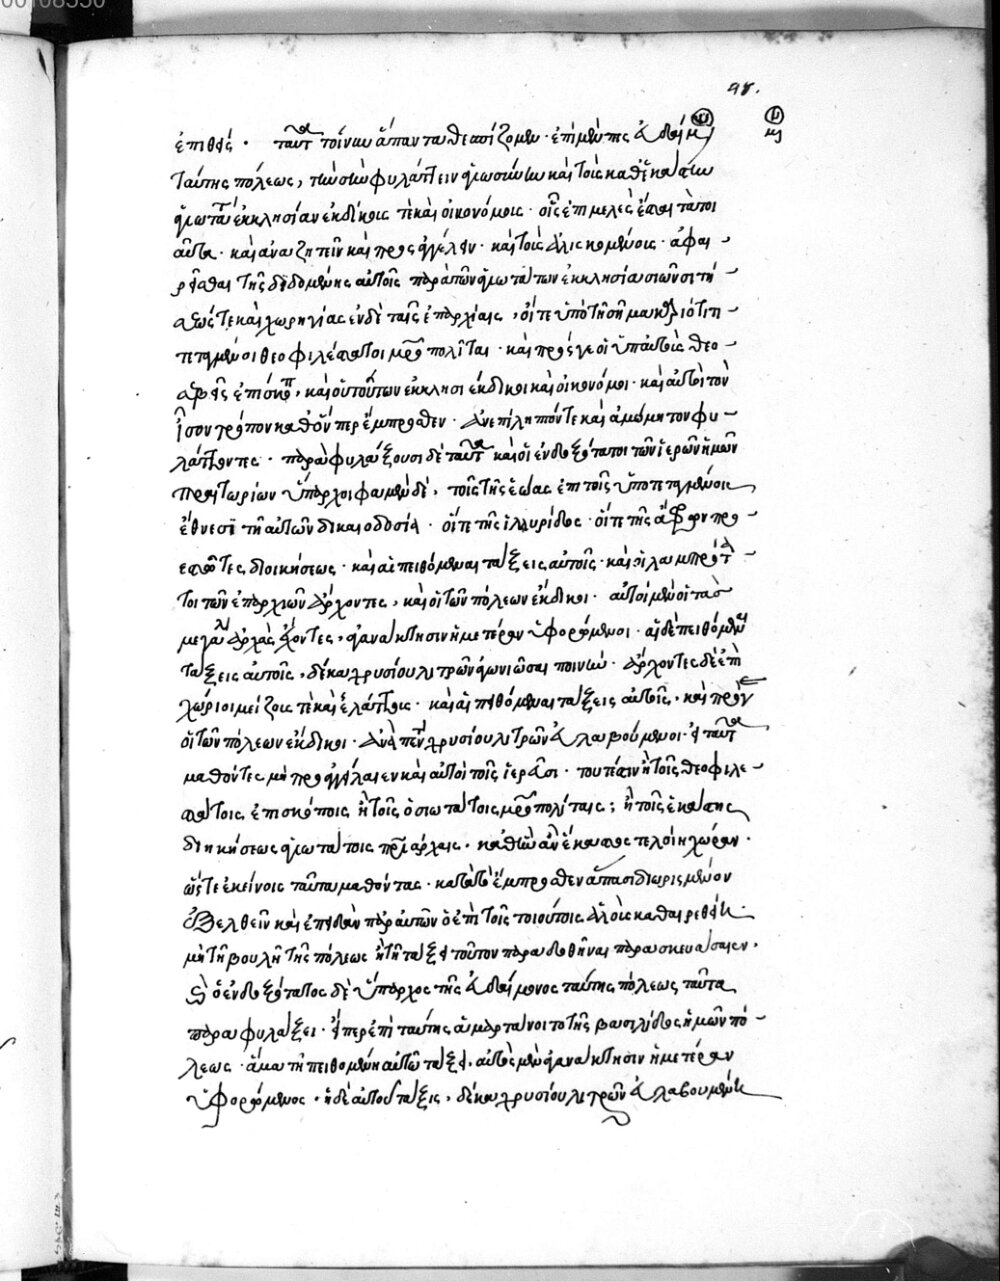 98.
ἐπιθείς · ταῦτα τοίνυν ἅπαντα θεσπίζομεν · ἐπὶ μὲν τῆς εὐδαίμονος
ταύτης πόλεως, φυλάττειν καὶ τοῖς καθ' ἕκαστην
ἁγιωτάτην ἐκκλησίαν ἐκδίκοις τε καὶ οἰκονόμοις · οἷς ἐπιμελὲς ἔσται τὰ τοι
αῦτα · καὶ ἀναζητεῖν καὶ προσαγγέλειν · καὶ τοῖς ἁλισκομένοις · ἀφαι
ρεῖσθαι τῆς διδομένης αὐτοῖς παρὰ τῶν ἁγιωτάτων ἐκκλησιῶν σιτή
σεώς τε καὶ χωρηγίας ἐν δὲ ταῖς ἐπαρχίαις, οἵ τε ὑπὸ τὴν σὴν μακαριότητα
τεταγμένοι θεοφιλέστατοι μητροπολῖται · καὶ πρός γε οἱ ὑπ' αὐτοὺς θεο
σεβεῖς ἐπίσκοποι, καὶ οἱ τούτων ἐκκλησιέκδικοι καὶ οἰκονόμοι · κατὰ τὸν
ἴσον τρόπον καθ' ὅνπερ ἔμπροσθεν · ἀνεπίληπτόν τε καὶ ἀμώμητον φυ
λάττοντες · παραφυλάξουσι δὲ ταῦτα καὶ οἱ ἐνδοξότατοι τῶν ἱερῶν ἡμῶν
πραιτωρίων ὕπαρχοι φαμὲν δὲ, τοῖς τῆς ἑώας ἐπὶ τοῖς ὑποτεταγμένοις
ἔθνεσι τῇ αὐτῶν δικαιοδοσίᾳ · οἵ τε τῆς ἰλλυρίδος · οἵ τε τῆς ἄφρων προ
εστῶτες διοικήσεως · καὶ αἱ πειθόμεναι τάξεις αὐτοῖς · καὶ οἱ λαμπρότα
τοι τῶν ἐπαρχιῶν ἄρχοντες, καὶ οἱ τῶν πόλεων ἔκδικοι · αὐτοὶ μὲν οἱ τὰς
μεγάλας ἀρχὰς ἔχοντες, ἀγανάκτησιν ἡμετέραν ὑφορώμενοι · αἱ δὲ πειθόμεναι
τάξεις αὐτοῖς, δέκα χρυσίου λιτρῶν ἀγωνιῶσαι ποινήν · ἄρχοντες δὲ ἐπι
χώριοι μείζους τε καὶ ἐλάττους · καὶ αἱ πειθόμεναι τάξεις αὐτοῖς · καὶ πρός γε
οἱ τῶν πόλεων ἔκδικοι · ἀνὰ πέντε χρυσίου λιτρῶν εὐλαβούμενοι · εἰ ταῦτα
μαθόντες μὴ προσαγγείλαιεν καὶ αὐτοὶ τοῖς ἱερεῦσι · τουτέστιν ἢ τοῖς θεοφιλε
στάτοις ἐπισκόποις ἢ τοῖς ὁσιωτάτοις μητροπολίταις; ἢ τοῖς ἑκάστης
διηκήσεως ἁγιωτάτοις πατριάρχαις · καθ' ἣν ἂν ἕκαστος τελοίη χώραν ·
ὥστε ἐκείνοις ταῦτα μαθόντας · κατὰ τὸ ἔμπροσθεν ἅπασι διωρισμένον
ἐξελθεῖν καὶ ἐπειδὰν παρ' αὐτῶν ὁ ἐπὶ τοῖς τοιούτοις ἁλοὺς καθαιρεθείη
μὴ τῇ βουλῇ τῆς πόλεως ἢ τῇ τάξει τοῦτον παραδοθῆναι παρασκευάσαιεν ·
καὶ ὁ ἐνδοξότατος δὲ ὕπαρχος τῆς εὐδαίμονος ταύτης πόλεως ταῦτα
παραφυλάξει · εἴπερ ἐπὶ ταύτης ἁμαρτάνοιτο τῆς βασιλίδος ἡμῶν πό
λεως · ἅμα τῇ πειθομένῃ αὐτῷ τάξει · αὐτὸς μὲν ἀγανάκτησιν ἡμετέραν
ὑφορώμενος · ἡ δὲ αὐτοῦ τάξις, δέκα χρυσίου λιτρῶν εὐλαβουμένη